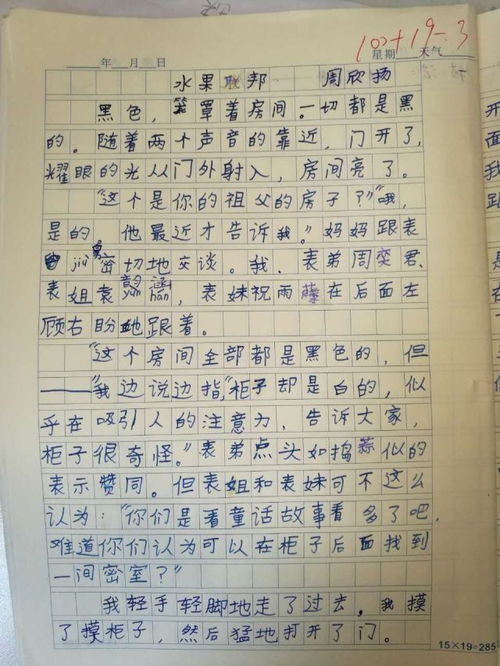 10+19-3
年 月 日 星期 天气
水果联邦 周欣扬
黑色，笼罩着房间。一切都是黑
的。随着两个声音的靠近，门开了，
耀眼的光从门外射入，房间亮了。
“这个是你的祖父的房子？”“哦，
是的，他最近才告诉我。”妈妈跟表
jiu 密切地交谈。我、表弟周奕君、
表姐袁韵涵，表妹祝雨藤在后面左
yùn hán
顾右盼地跟着。
“这个房间全部都是黑色的，但
——”我边说边指“柜子却是白的，似
乎在吸引人的注意力，告诉大家，
柜子很奇怪。”表弟点头如捣蒜似的
表示赞同。但表姐和表妹可不这么
认为：“你们是看童话故事看多了吧，
难道你们认为可以在柜子后面找到
一间密室？”
我轻手轻脚地走了过去，我摸
了摸柜子，然后猛地打开了门。
15×19=285